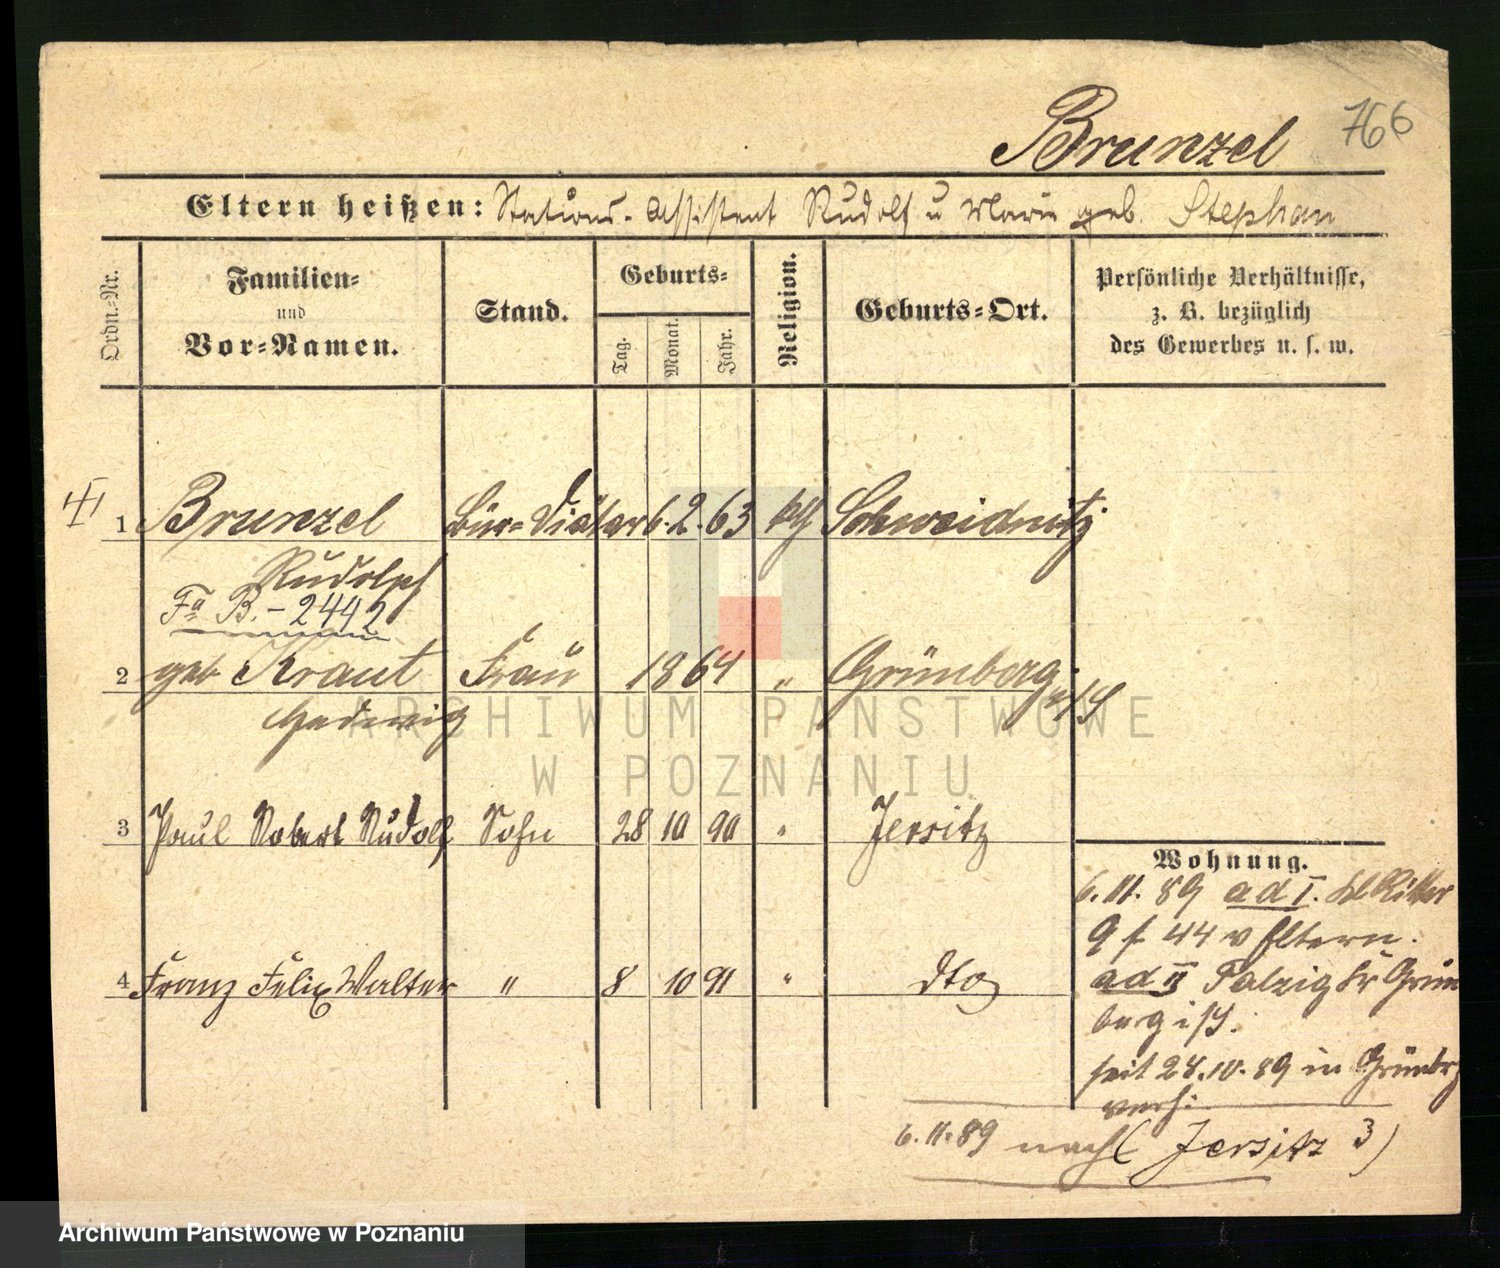 Brunzel 766
Eltern heißen: Stations-Assistent Rudolf u Marie geb. Stephan
Ordn.-Nr.
Familien-
und
Vor-Namen.
Stand.
Geburts-
Tag.
Monat.
Jahr.
Religion.
Geburts-Ort.
Persönliche Verhältnisse,
z. B. bezüglich
des Gewerbes u. s. w.
1 Brunzel Bür-Diätar 6. 2. 63 kath Schweidnitz
Rudolph
Fa B.-2442
2 geb Kraut Frau 1864 " Grünberg
Hedwig
ARCHIWUM PAŃSTWOWE
W POZNANIU
3 Paul Robert Rudolf Sohn 28 10 90 " Jersitz
Wohnung.
6.11.89 ad I. Ritter
9 f 44 v Eltern.
4 Franz Felix Walter " 8 10 91 " dto
ad II Grün
berg i/S.
seit 28.10.89 in Grünbrg
verh:
6.11.89 nach (Jersitz 3)
Archiwum Państwowe w Poznaniu